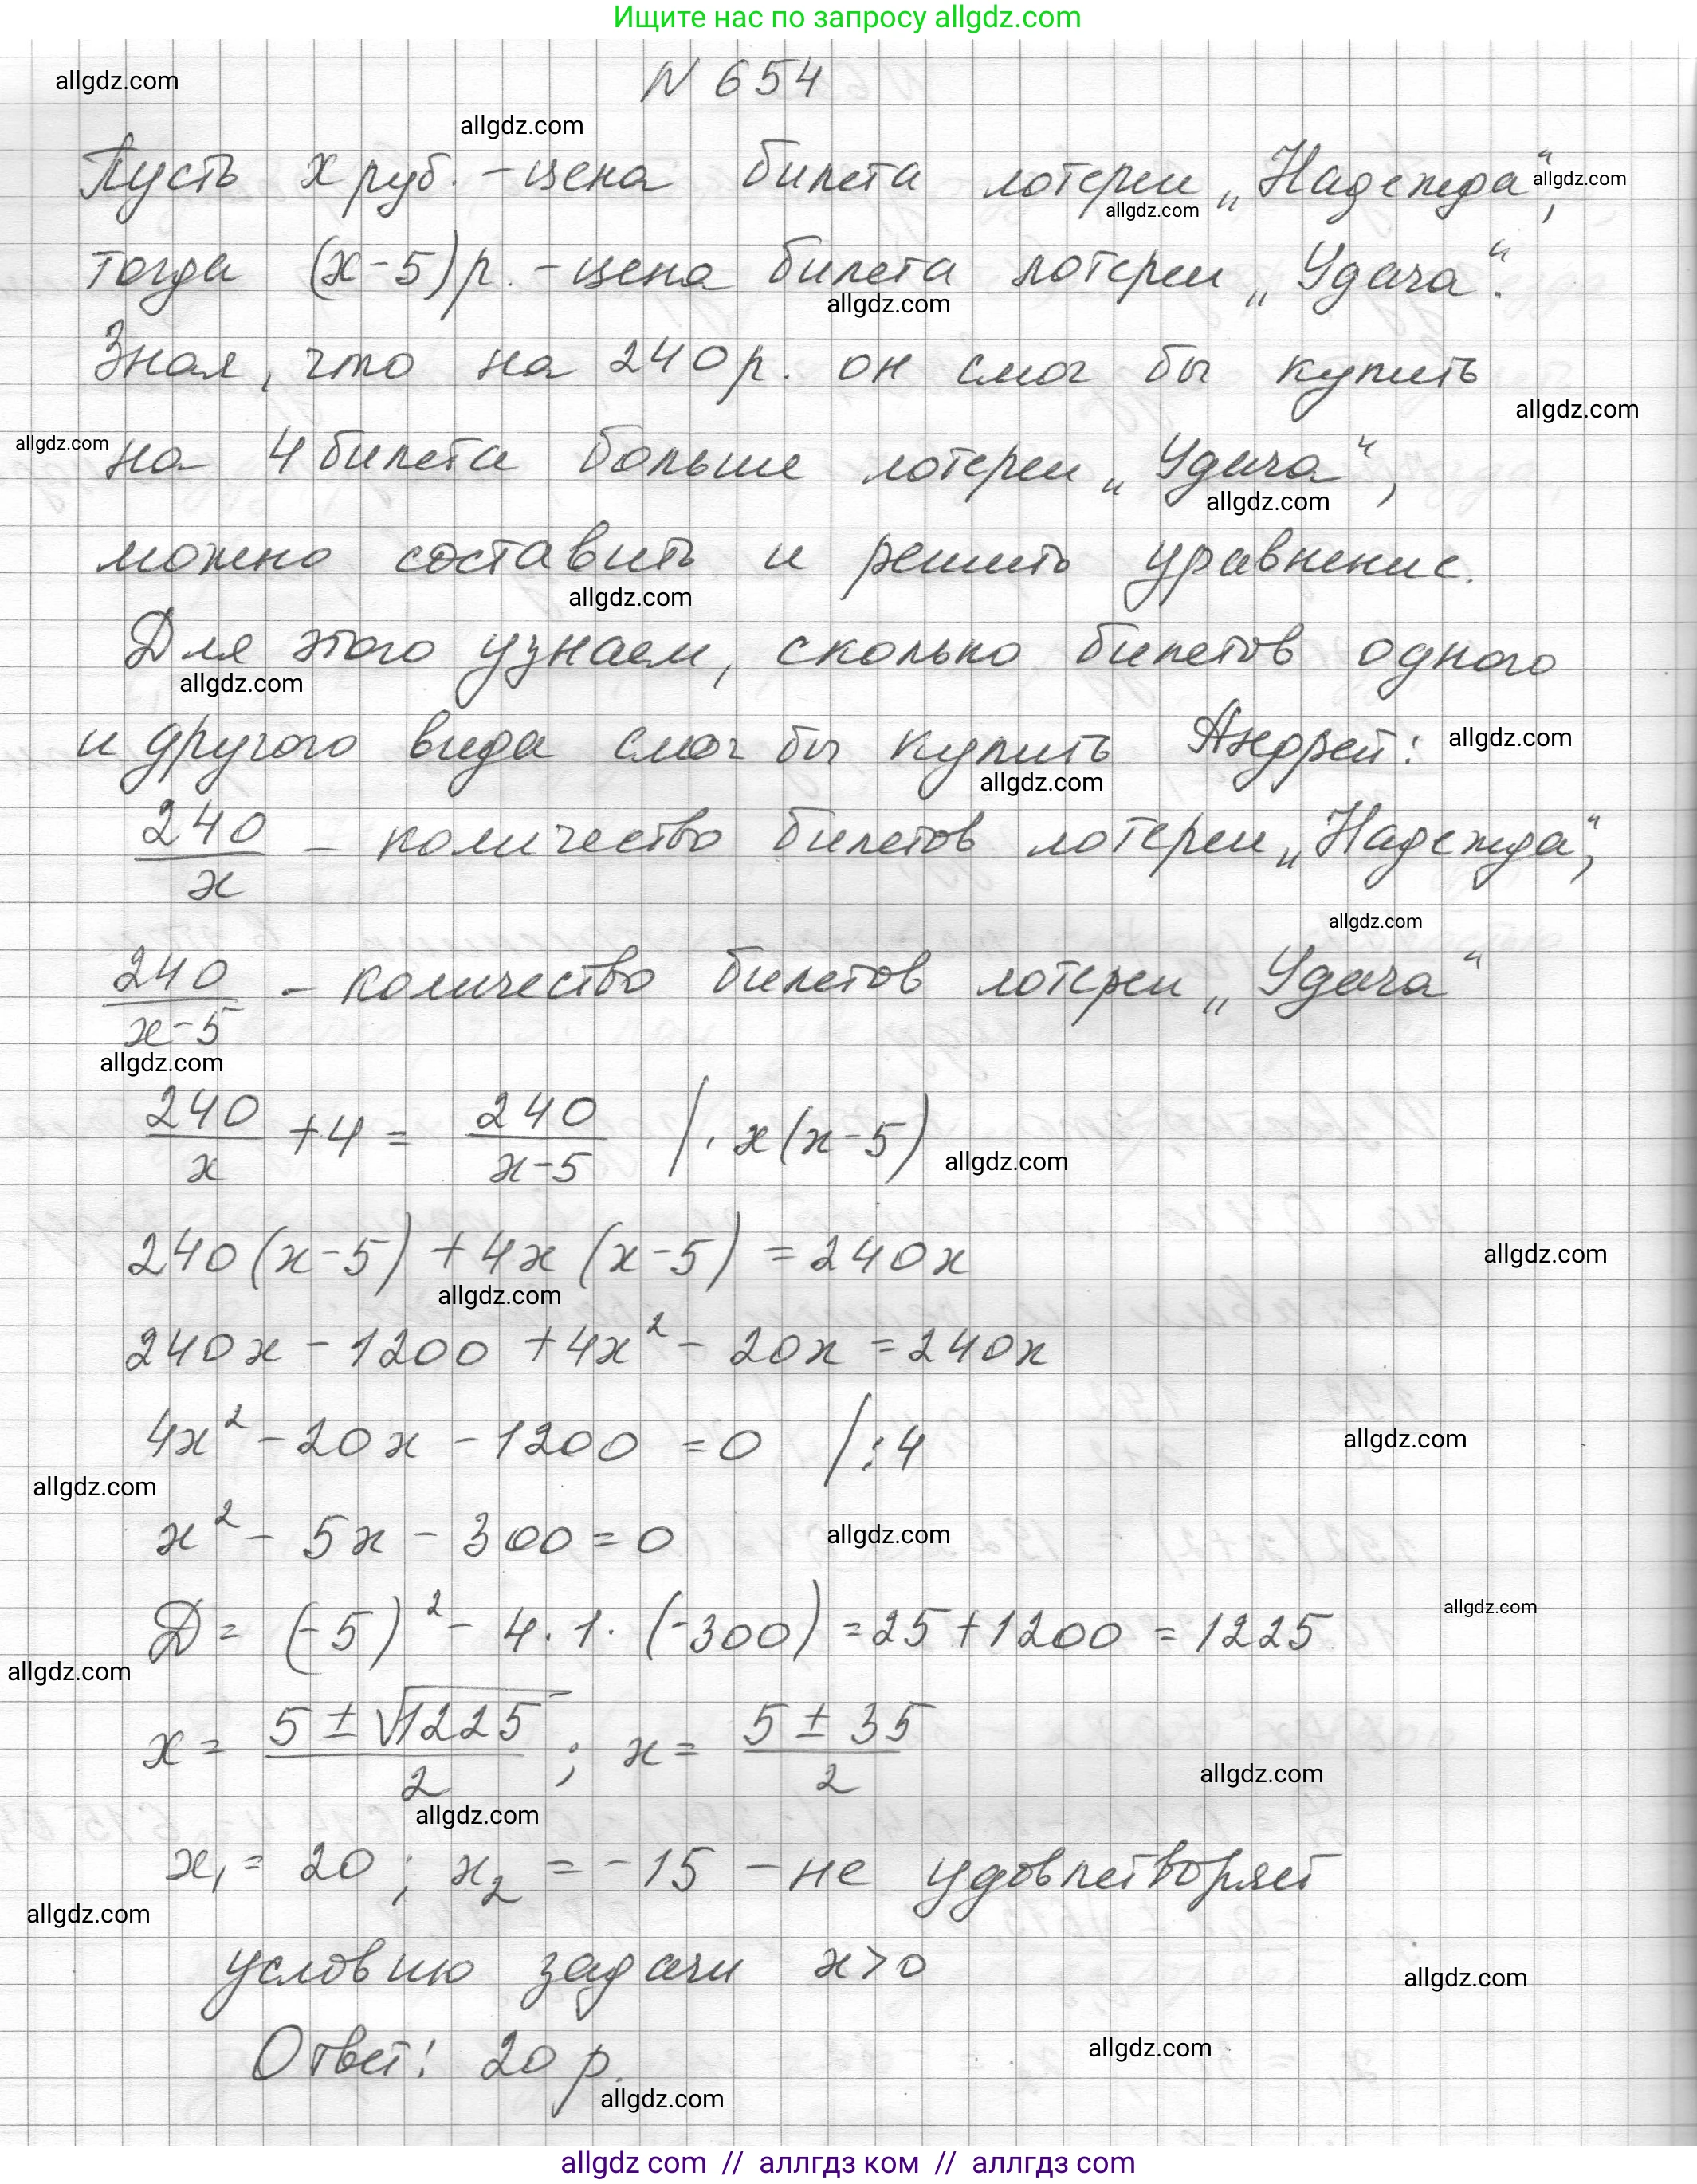 Ищите нас по запросу allgdz.com
allgdz.com
N 654
allgdz.com
Пусть x руб. - цена билета лотереи „Надежда“,
allgdz.com
allgdz.com
тогда (x-5)р. - цена билета лотереи „Удача“.
allgdz.com
Зная, что на 240р. он смог бы купить
allgdz.com
allgdz.com
на 4 билета больше лотереи „Удача“,
allgdz.com
можно составить и решить уравнение.
allgdz.com
Для этого узнаем, сколько билетов одного
allgdz.com
и другого вида смог бы купить Андрей:
allgdz.com
allgdz.com
240/x - количество билетов лотереи „Надежда“,
allgdz.com
240/(x-5) - количество билетов лотереи „Удача“
allgdz.com
240/x + 4 = 240/(x-5) /· x(x-5)
allgdz.com
240(x-5) + 4x(x-5) = 240x
allgdz.com
allgdz.com
240x - 1200 + 4x² - 20x = 240x
4x² - 20x - 1200 = 0 /:4
allgdz.com
allgdz.com
x² - 5x - 300 = 0
allgdz.com
D = (-5)² - 4·1·(-300) = 25 + 1200 = 1225
allgdz.com
allgdz.com
x = (5 ± √1225)/2 ; x = (5 ± 35)/2
allgdz.com
allgdz.com
x₁ = 20 ; x₂ = -15 - не удовлетворяет
allgdz.com
условию задачи x>0
allgdz.com
Ответ: 20 р.
allgdz.com
allgdz.com
allgdz com // аллгдз ком // аллгдз com